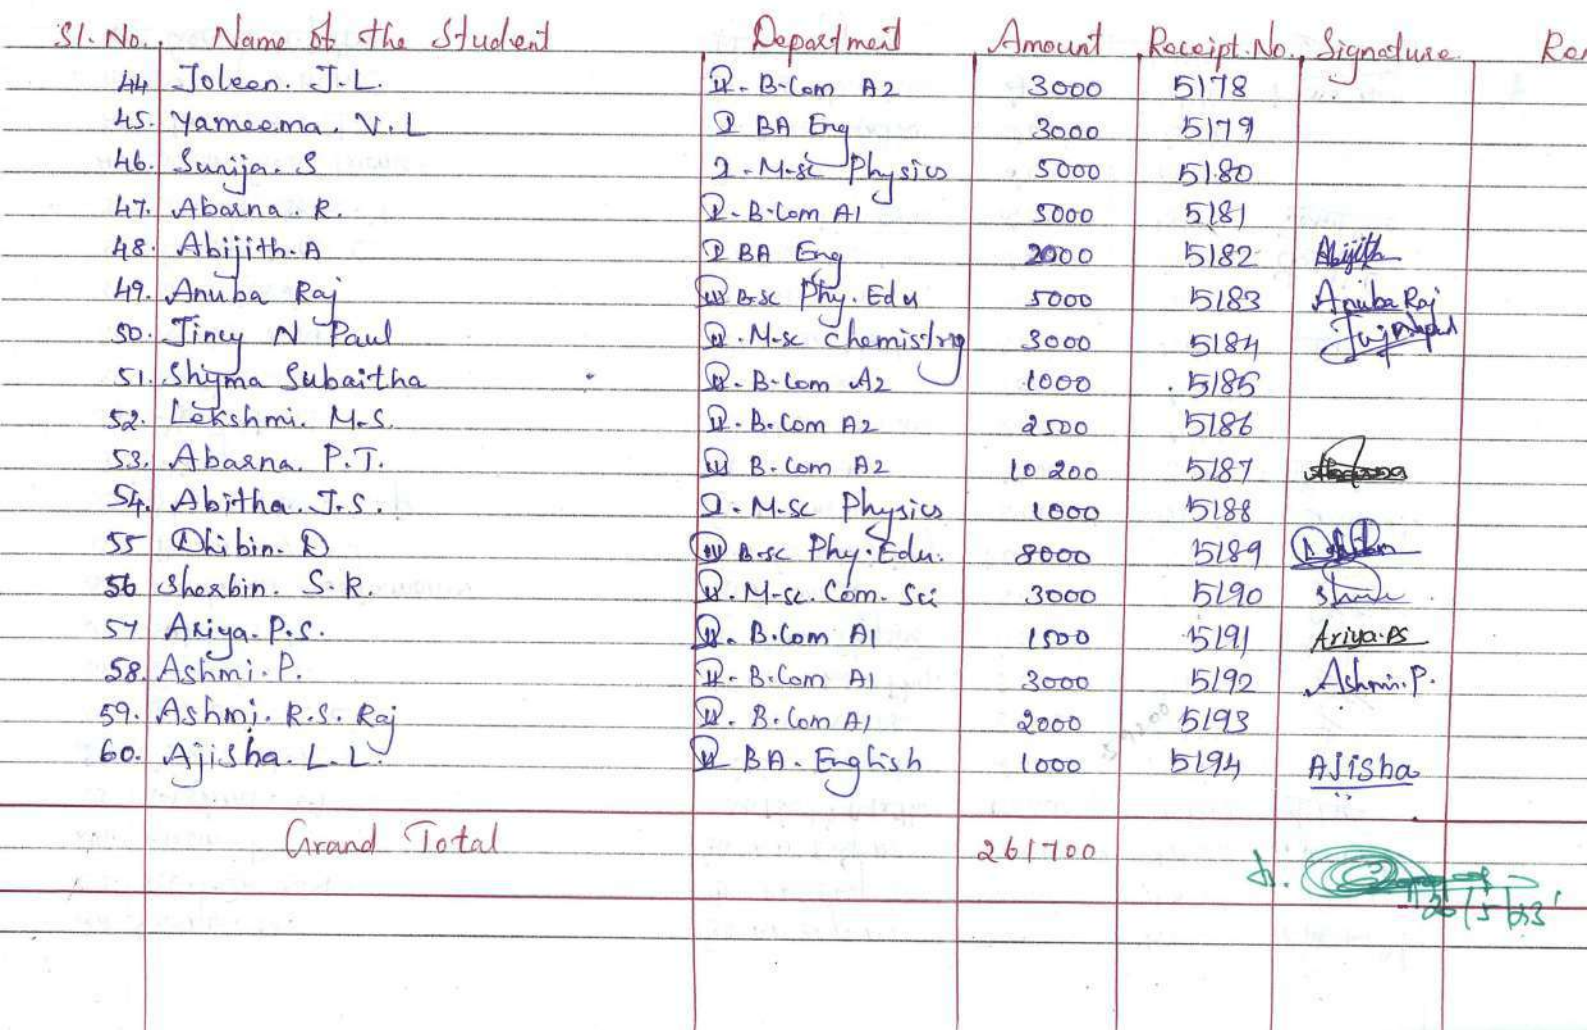 Sl. No. Name of the Student Department Amount Receipt. No. Signature
44 Joleen. J.L. II. B.Com A2 3000 5178
45. Yameema. V.L I BA Eng 3000 5179
46. Sunija. S I. M.sc Physics 5000 5180
47. Abarna. R. I. B.Com A1 5000 5181
48. Abijith. A I BA Eng 2000 5182 Abijith
49. Anuba Raj III B.sc Phy. Edu 5000 5183 Anuba Raj
50. Jincy N Paul II. M.sc Chemistry 3000 5184
51. Shyma Subaitha II. B.Com A2 1000 5185
52. Lekshmi. M.S. II. B.Com A2 2500 5186
53. Abarna. P.T. III B.Com A2 10 200 5187
54. Abitha. J.S. I. M.sc Physics 1000 5188
55 Dhibin. D III B.sc Phy. Edu. 8000 5189
56 Sherbin. S.R. II. M.sc. Com. Sci 3000 5190
57 Ariya. P.S. II. B.Com A1 1500 5191 Ariya.PS
58. Ashmi. P. II. B.Com A1 3000 5192 Ashmi.P.
59. Ashmi. R.S. Raj II. B.Com A1 2000 5193
60. Ajisha. L.L. II BA. English 1000 5194 AJisha
Grand Total 261700